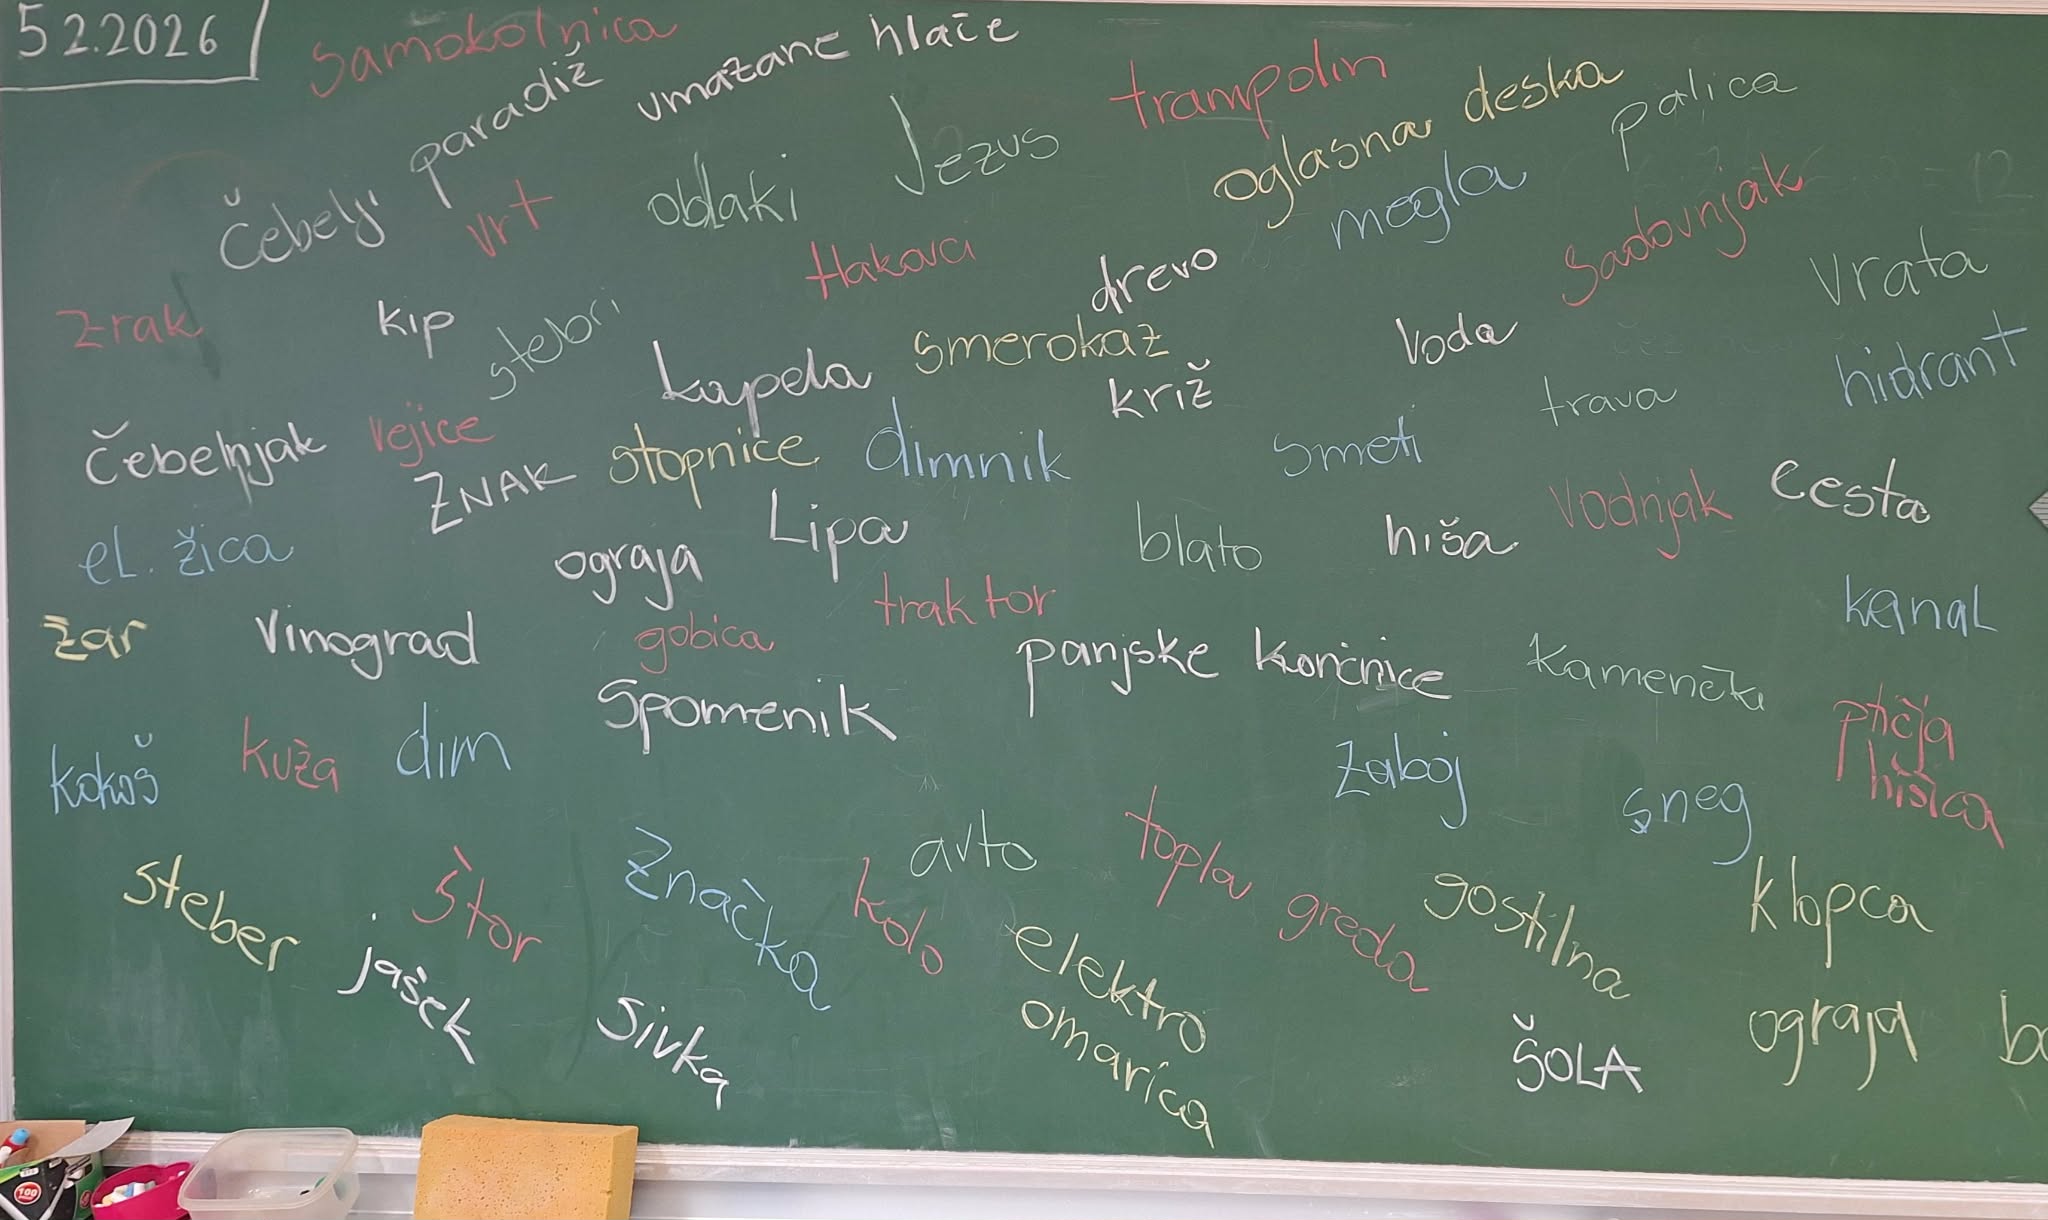 5 2.2026
samokolnica
umazane hlače
trampolin
oglasna deska
palica
Čebelji paradiž
vrt
oblaki
Jezus
megla
sadovnjak
tlakovci
drevo
vrata
zrak
kip
stebri
kapela
smerokaz
križ
Voda
trava
hidrant
čebelnjak
vejice
ZNAK
stopnice
dimnik
smeti
vodnjak
cesta
el. žica
ograja
Lipa
blato
hiša
kanal
žar
Vinograd
gobica
traktor
panjske končnice
kamenčki
ptičja
hišica
kokoš
kuža
dim
Spomenik
zaboj
sneg
steber
štor
značka
kolo
avto
topla greda
gostilna
klopca
jašek
sivka
elektro
omarica
ŠOLA
ograja